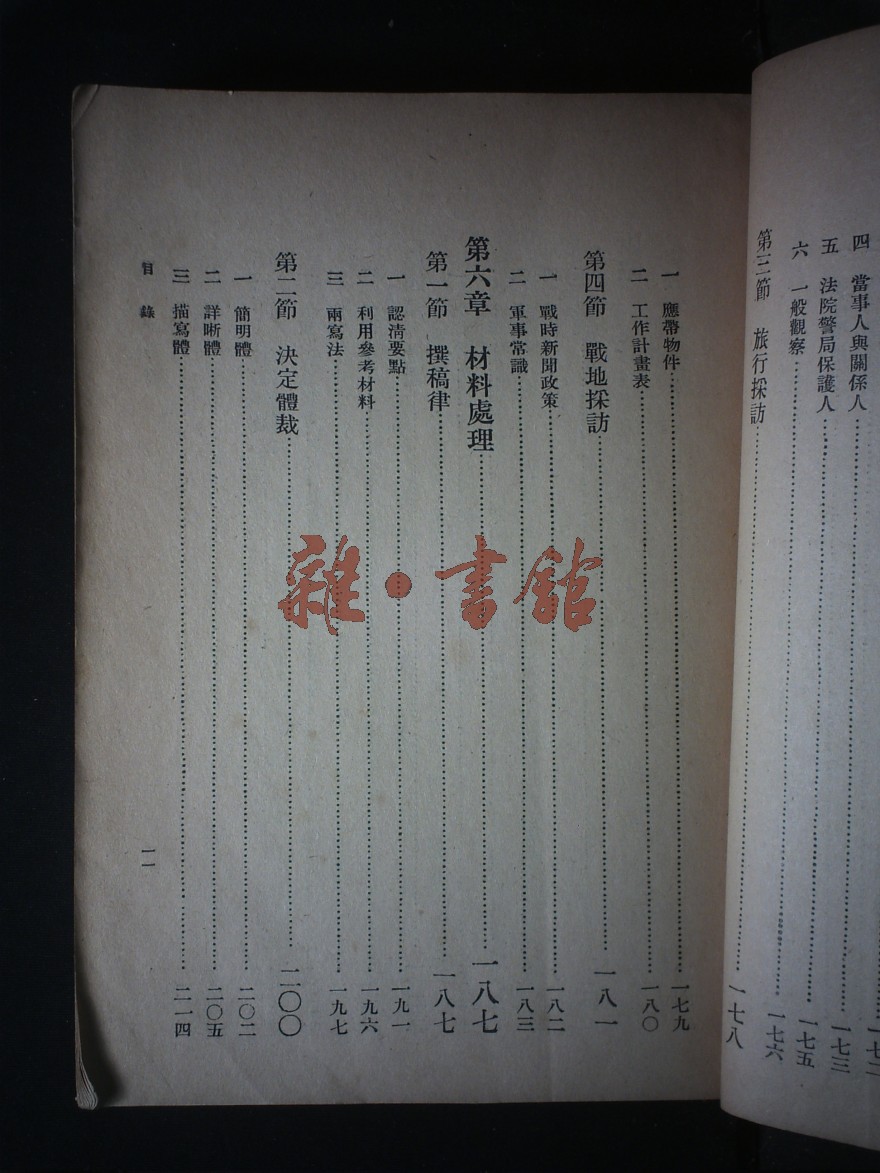 一七二
四 當事人與關係人 一七三
五 法院警局保護人 一七五
六 一般觀察 一七六
第三節 旅行採訪 一七八
一 應帶物件 一七九
二 工作計畫表 一八〇
第四節 戰地採訪 一八一
一 戰時新聞政策 一八二
二 軍事常識 一八三
第六章 材料處理 一八七
第一節 撰稿律 一八七
一 認清要點 一九一
二 利用參考材料 一九六
三 兩寫法 一九七
第二節 決定體裁 二〇〇
一 簡明體 二〇二
二 詳晰體 二〇五
三 描寫體 二一四
目錄
一一
雜·書館